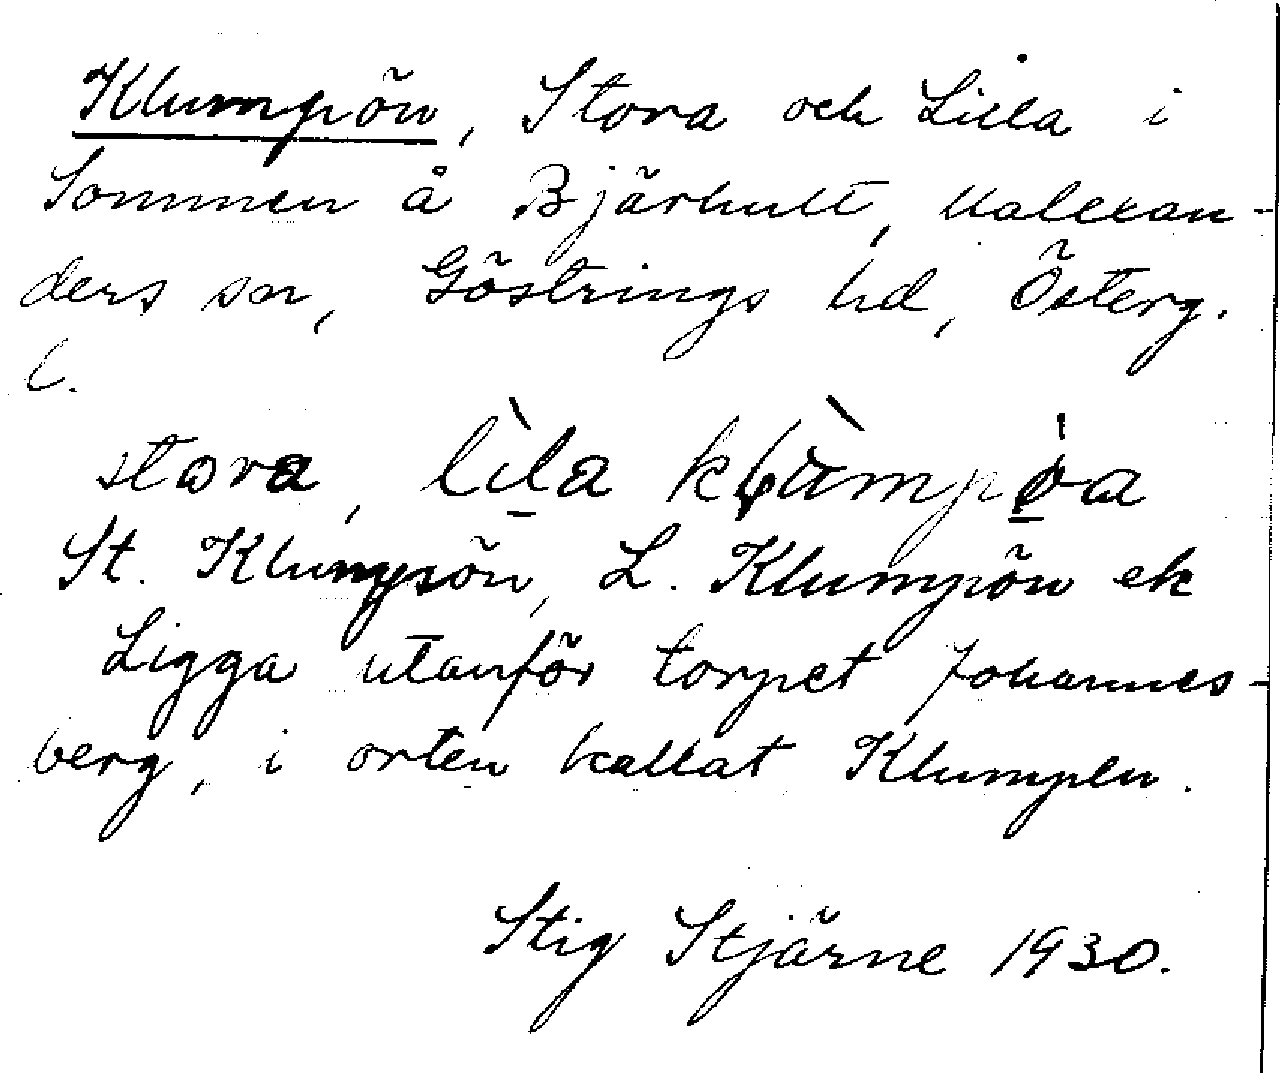 Klumpön, Stora och Lilla i
Sommen å Bjärhult, Malexan-
ders sn, Göstrings hd, Österg.
l.
stora, lìla klùmpøa
St. Klumpön, L. Klumpön ek
Ligga utanför torpet Johannes-
berg, i orten kallat Klumpen.
Stig Stjärne 1930.